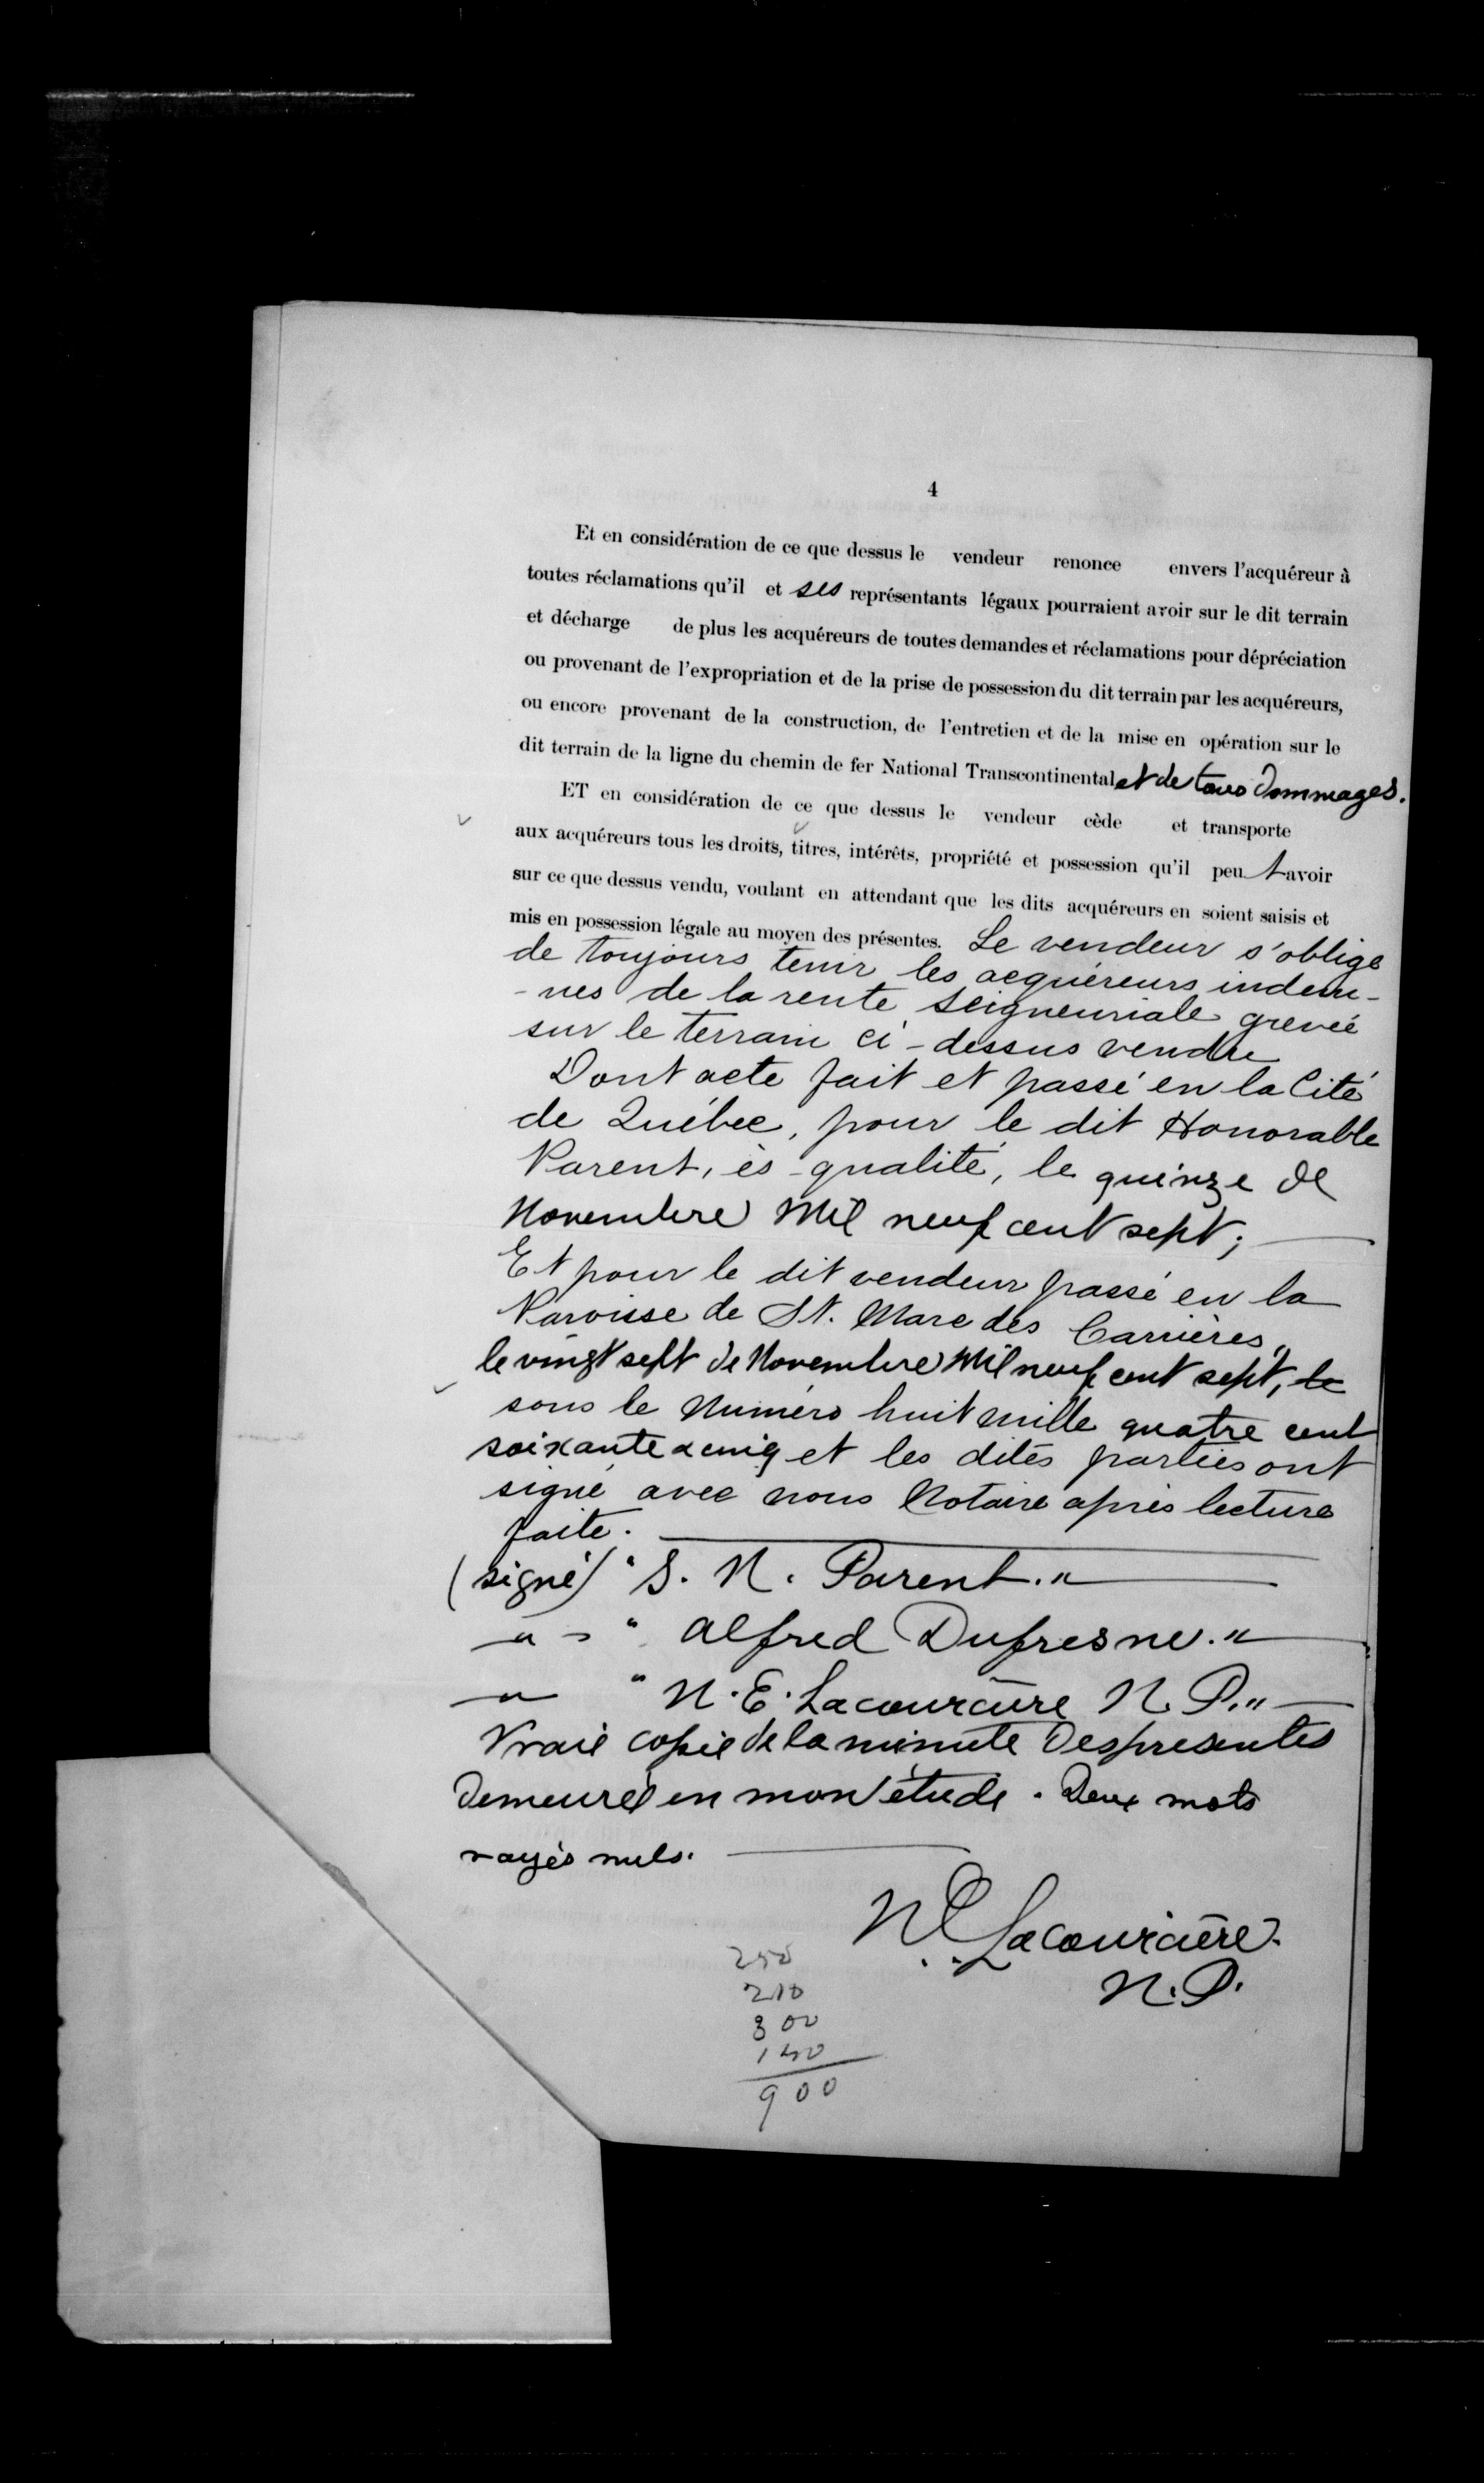 4
Et en considération de ce que dessus le vendeur renonce envers l'acquéreur à
toutes réclamations qu'il et ses représentants légaux pourraient avoir sur le dit terrain
et décharge de plus les acquéreurs de toutes demandes et réclamations pour dépréciation
ou provenant de l'expropriation et de la prise de possession du dit terrain par les acquéreurs,
ou encore provenant de la construction, de l'entretien et de la mise en opération sur le
dit terrain de la ligne du chemin de fer National Transcontinental et de tous dommages.
ET en considération de ce que dessus le vendeur cède et transporte
aux acquéreurs tous les droits, titres, intérêts, propriété et possession qu'il peut avoir
sur ce que dessus vendu, voulant en attendant que les dits acquéreurs en soient saisis et
mis en possession légale au moyen des présentes. Le vendeur s'oblige
de toujours tenir les acquéreurs indem-
-nes de la rente seigneuriale grevée
sur le terrain ci-dessus vendu
Dont acte fait et passé en la Cité
de Québec, pour le dit Honorable
Parent, ès-qualité, le quinze de
Novembre Mil neuf cent sept;
Et pour le dit vendeur passé en la
Paroisse de St. Marc des Carrières,
le vingt sept de Novembre Mil neuf cent sept,
sous le Numéro huit mille quatre cent
soixante & cinq et les dites parties ont
signé avec nous Notaire après lecture
faite.
(signé) "S. N. Parent."
" " Alfred Dufresne."
" "N. E. Lacourcière N. P."
Vraie copie de la minute des presentes
demeurée en mon étude. Deux mots
rayés nuls.
N. E. Lacourcière.
N. P.
250
210
300
140
900